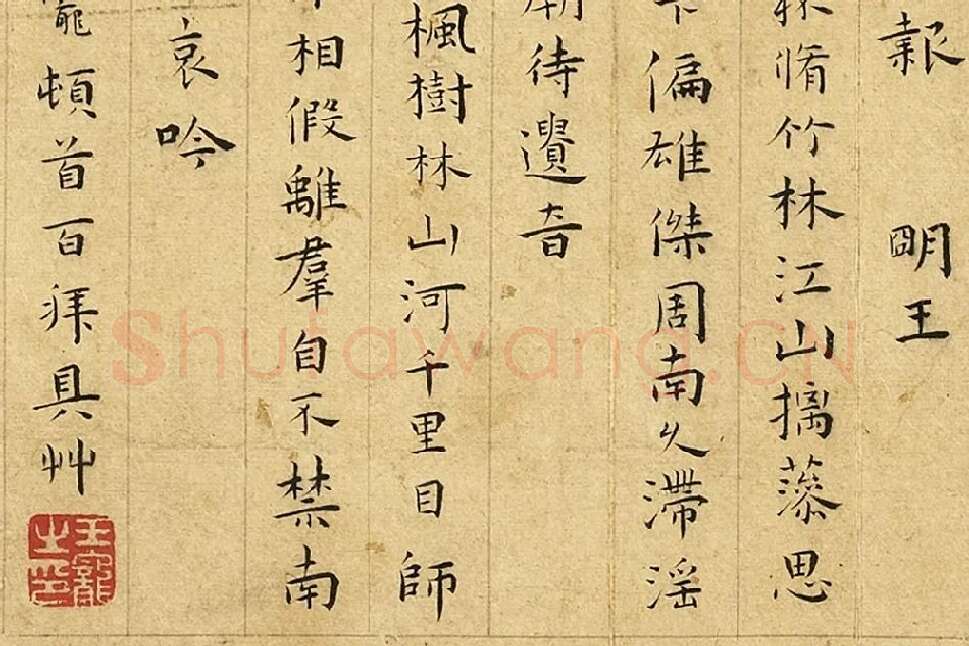 報 明王
脩竹林江山摛藻思
偏雄傑周南久滯淫
待遺音
楓樹林山河千里目師
相假離羣自不禁南
哀吟
頓首百拜具艸
王寵之印
Shufawang.CN